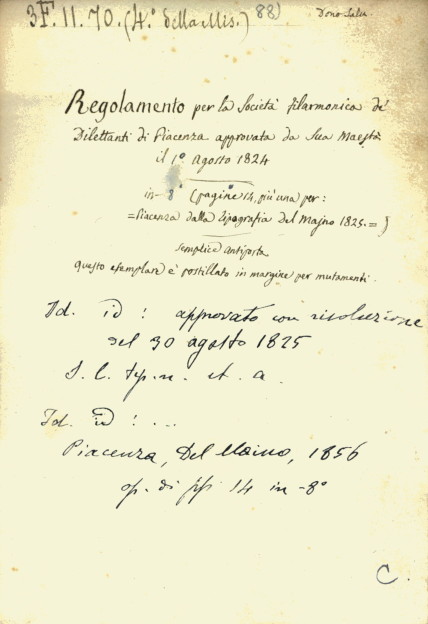 3F.II.70. (4.° della Mis.) 88)
Dono
Regolamento per la Società filarmonica de'
Dilettanti di Piacenza approvata da Sua Maestà
il 1° agosto 1824
in-8° (pagine 14, più una per:
=Piacenza dalla Tipografia del Majno 1825.=)
semplice antiporta
questo esemplare è postillato in margine per mutamenti.
Id. id: approvato con risoluzione
del 30 agosto 1825
S. l. typ. n. et. a.
Id. id: ...
Piacenza, Del Maino, 1856
op. di pp 14 in-8°
C.